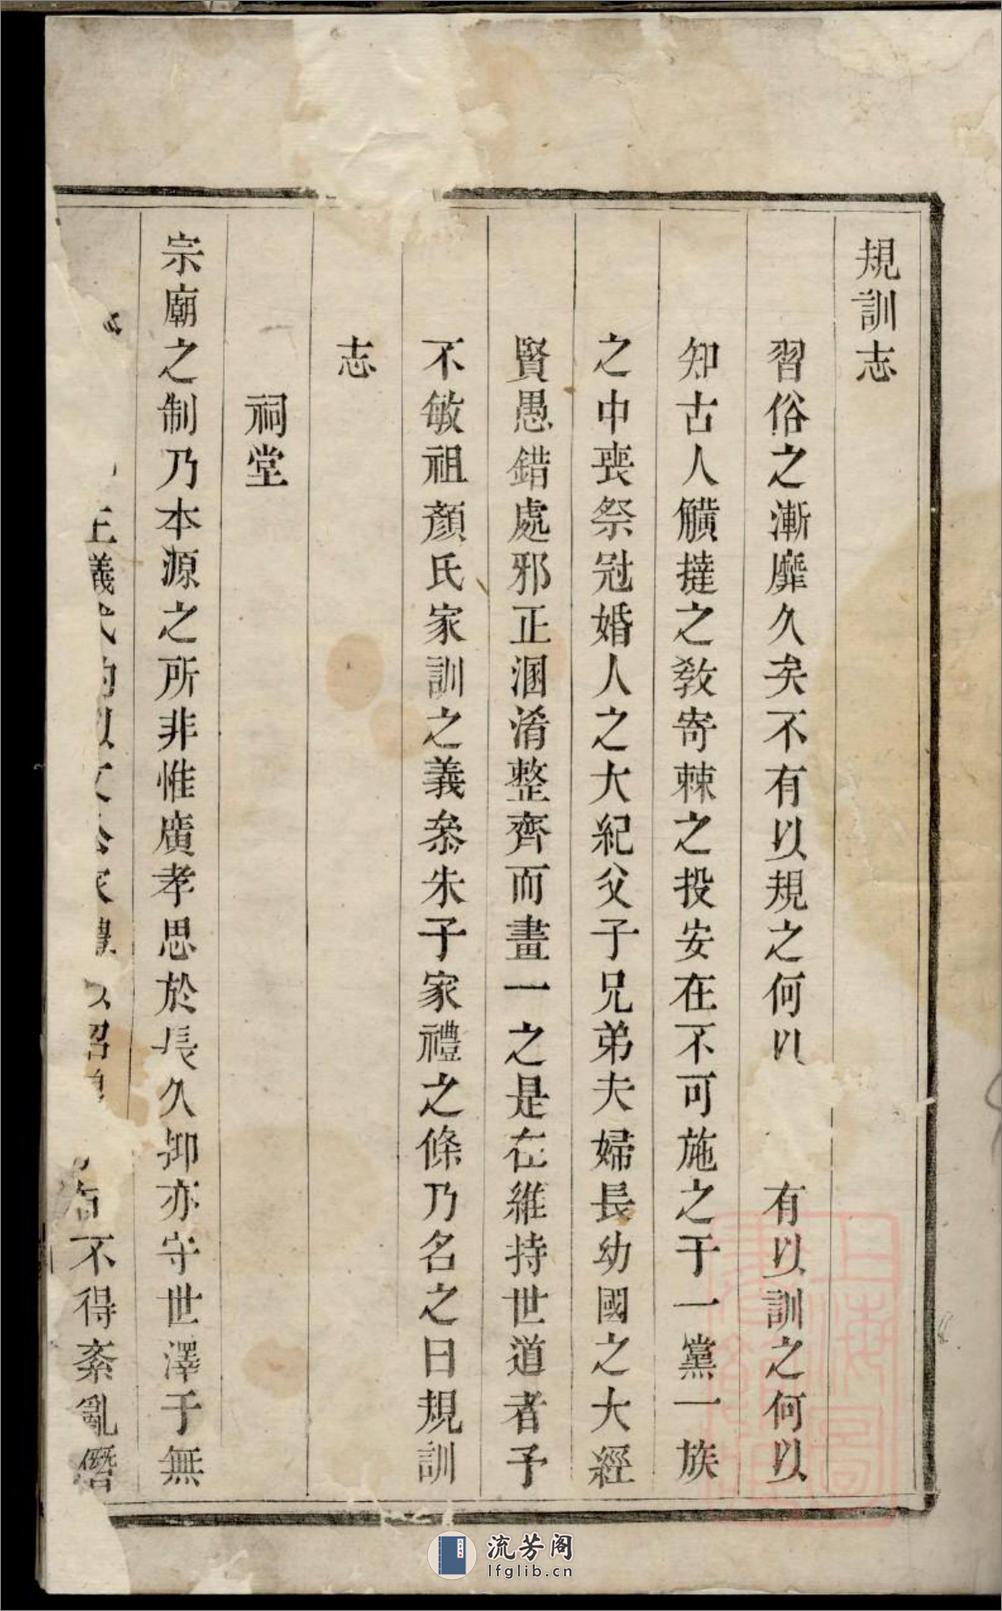 規訓志
習俗之漸靡久矣不有以規之何以有以訓之何以
知古人觵撻之敎寄棘之投安在不可施之于一黨一族
之中喪祭冠婚人之大紀父子兄弟夫婦長幼國之大經
賢愚錯處邪正溷淆整齊而畫一之是在維持世道者予
不敏祖顏氏家訓之義叅朱子家禮之條乃名之曰規訓
志
祠堂
宗廟之制乃本源之所非惟廣孝思於長久抑亦守世澤于無
不得紊亂僭
流芳阁
lfglib.cn